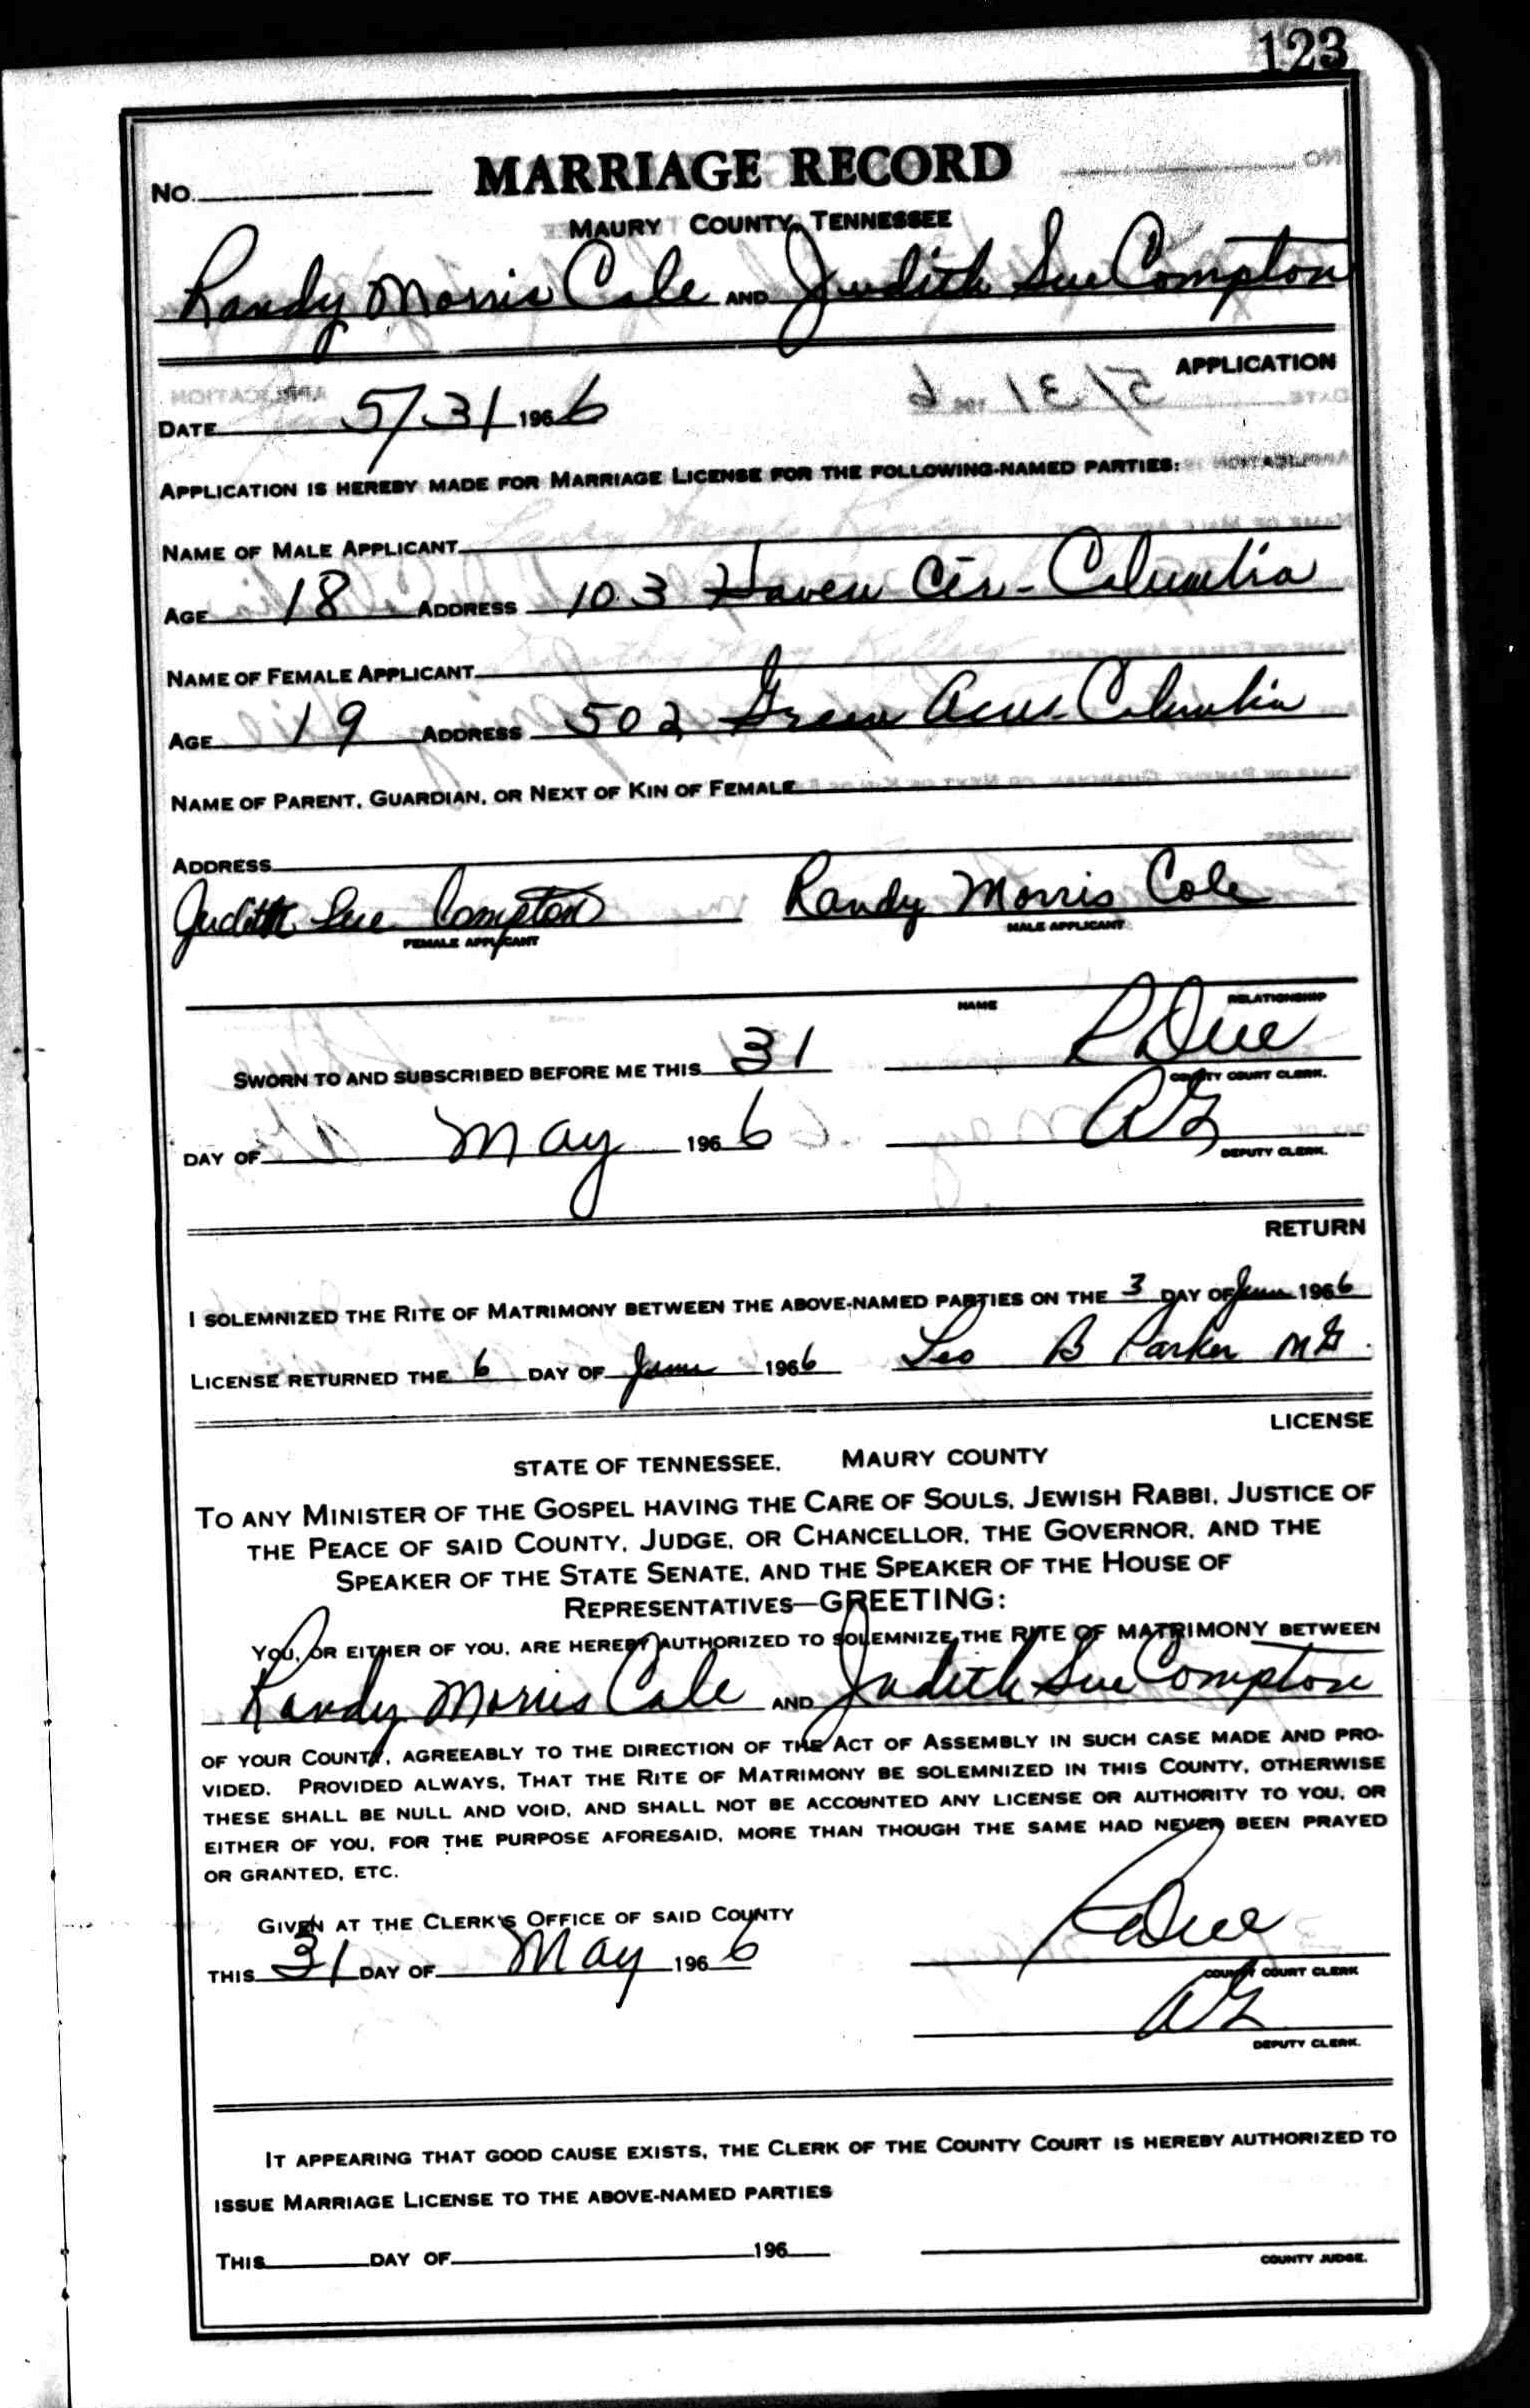 123
No. MARRIAGE RECORD
MAURY COUNTY, TENNESSEE
Randy Morris Cole AND Judith Sue Compton
APPLICATION
DATE 5/31 1966
APPLICATION IS HEREBY MADE FOR MARRIAGE LICENSE FOR THE FOLLOWING-NAMED PARTIES:
NAME OF MALE APPLICANT
AGE 18 ADDRESS 103 Haven Cir - Columbia
NAME OF FEMALE APPLICANT
AGE 19 ADDRESS 502 Green Acres Columbia
NAME OF PARENT, GUARDIAN, OR NEXT OF KIN OF FEMALE
ADDRESS
Judith Sue Compton Randy Morris Cole
FEMALE APPLICANT MALE APPLICANT
NAME RELATIONSHIP
SWORN TO AND SUBSCRIBED BEFORE ME THIS 31
COUNTY COURT CLERK.
DAY OF May 1966
DEPUTY CLERK.
RETURN
I SOLEMNIZED THE RITE OF MATRIMONY BETWEEN THE ABOVE-NAMED PARTIES ON THE 3 DAY OF June 1966
LICENSE RETURNED THE 6 DAY OF June 1966 Leo B Parker MG
LICENSE
STATE OF TENNESSEE, MAURY COUNTY
TO ANY MINISTER OF THE GOSPEL HAVING THE CARE OF SOULS, JEWISH RABBI, JUSTICE OF
THE PEACE OF SAID COUNTY, JUDGE, OR CHANCELLOR, THE GOVERNOR, AND THE
SPEAKER OF THE STATE SENATE, AND THE SPEAKER OF THE HOUSE OF
REPRESENTATIVES—GREETING:
YOU, OR EITHER OF YOU, ARE HEREBY AUTHORIZED TO SOLEMNIZE THE RITE OF MATRIMONY BETWEEN
Randy Morris Cole AND Judith Sue Compton
OF YOUR COUNTY, AGREEABLY TO THE DIRECTION OF THE ACT OF ASSEMBLY IN SUCH CASE MADE AND PRO-
VIDED. PROVIDED ALWAYS, THAT THE RITE OF MATRIMONY BE SOLEMNIZED IN THIS COUNTY, OTHERWISE
THESE SHALL BE NULL AND VOID, AND SHALL NOT BE ACCOUNTED ANY LICENSE OR AUTHORITY TO YOU, OR
EITHER OF YOU, FOR THE PURPOSE AFORESAID, MORE THAN THOUGH THE SAME HAD NEVER BEEN PRAYED
OR GRANTED, ETC.
GIVEN AT THE CLERK'S OFFICE OF SAID COUNTY
THIS 31 DAY OF May 1966
COUNTY COURT CLERK
DEPUTY CLERK.
IT APPEARING THAT GOOD CAUSE EXISTS, THE CLERK OF THE COUNTY COURT IS HEREBY AUTHORIZED TO
ISSUE MARRIAGE LICENSE TO THE ABOVE-NAMED PARTIES
THIS DAY OF 196
COUNTY JUDGE.